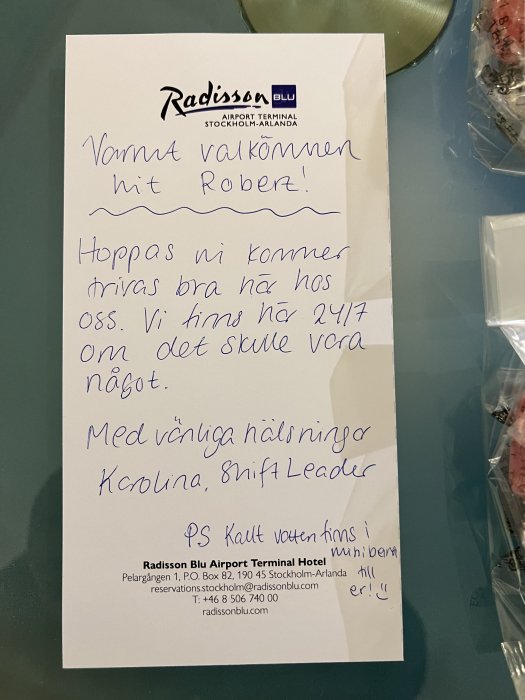 Radisson BLU
AIRPORT TERMINAL
STOCKHOLM-ARLANDA
Varmt valkömmen
hit Robert!
Hoppas ni kommer
trivas bra här hos
oss. Vi finns här 24/7
om det skulle vara
något.
Med vänliga hälsningar
Karolina, Shift Leader
PS Kallt vatten finns i
minibaren
till
er! :)
Radisson Blu Airport Terminal Hotel
Pelargången 1, P.O. Box 82, 190 45 Stockholm-Arlanda
reservations.stockholm@radissonblu.com
T: +46 8 506 740 00
radissonblu.com